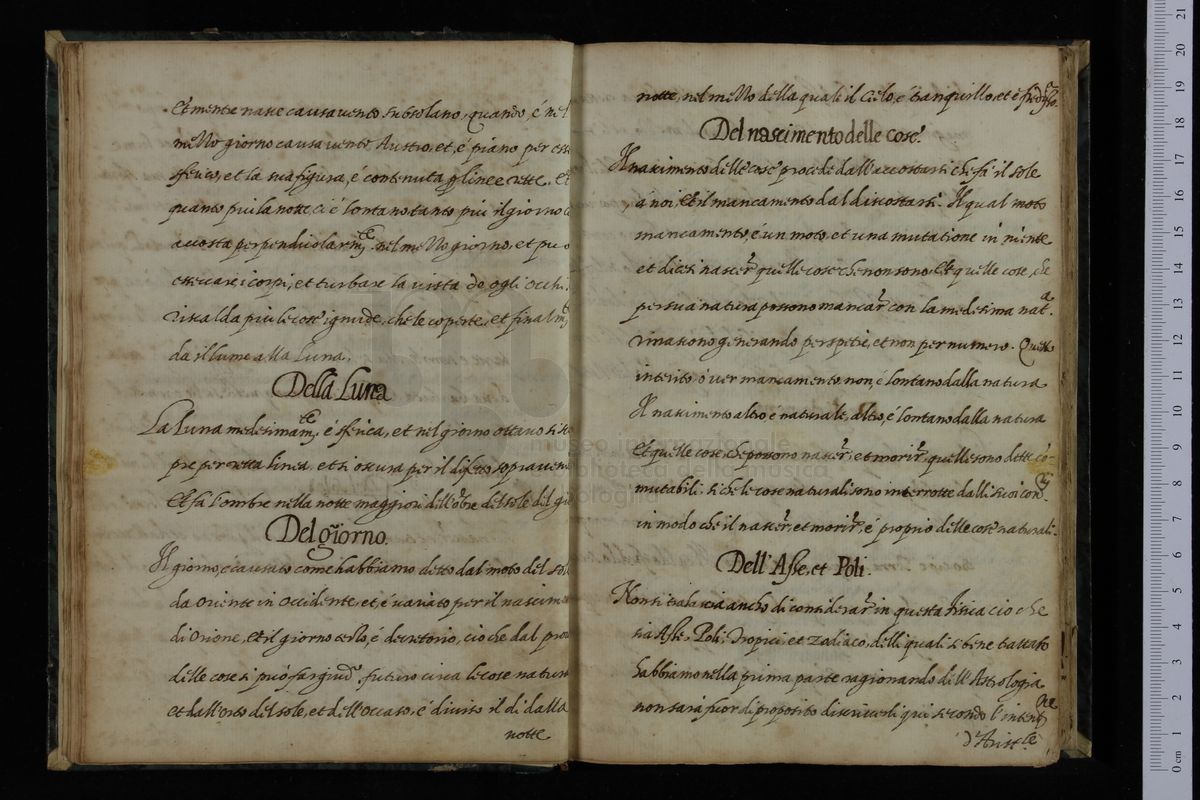 Et mentre nasce causa vento subsolano, quando, é nel
mezzo giorno causa vento Austro, et, é piano per
sferico, et la sua figura, é contenuta linee rette. Et
quanto piu la notte ci é lontano tanto piu il giorno
accosta nel mezzo giorno, et può
esseccare i corpi, et turbare la vista de gli occhi
riscalda piu le cose ignude, che le coperte, et
da il lume alla Luna.
Della Luna
La Luna é sferica, et nel giorno ottavo
pre per retta linea, et si oscura per il difetto
Et fa l'ombre nella notte maggiori dell'obre del sole del
Del giorno.
Il giorno, é causato come habbiamo detto dal moto del
da Oriente in Occidente, et, é variato per il
di Orione, et il giorno sesto, é decretorio, cio che dal
delle cose si può far giud.º futuro circa le cose
et dall'Orto del sole, et dell'Occaso, é diviso il di dalla
notte
notte, nel mezzo della quale il Cielo, é tranquillo, et é
Del nascimento delle cose.
Il nascimento delle cose procede dall'accostarsi che fà il sole
a noi, et il mancamento dal discostarsi. Il qual moto
mancamento, é un moto, et una mutatione in niente
et dicesi nascer quelle cose che non sono. Et quelle cose, che
per sua natura possono mancar con la medesima nat.a
rinascono generando per spetie, et non per numero. Questo
interito ò ver mancamento non, é lontano dalla natura
Il nascimento altro é naturale, altro, é lontano dalla natura
Et quelle cose, che possono nascer, et morir, quelle sono dette
mutabili. si che le cose naturali sono interrotte dalli suoi
in modo che il nascer, et morir, é proprio delle cose naturali.
Dell'Asse, et Poli.
Non si tralascia ancho di considerar in questa fisica cio che
sia Asse, Poli, Tropici, et Zodiaco, delli quali si bene trattato
habbiamo nella prima parte ragionando dell'Astrologia
non sarà fuor di proposito discriverli qui secondo
d'Arist.le
museo internazionale
biblioteca della musica
bologna
0 cm 1 2 3 4 5 6 7 8 9 10 11 12 13 14 15 16 17 18 19 20 21